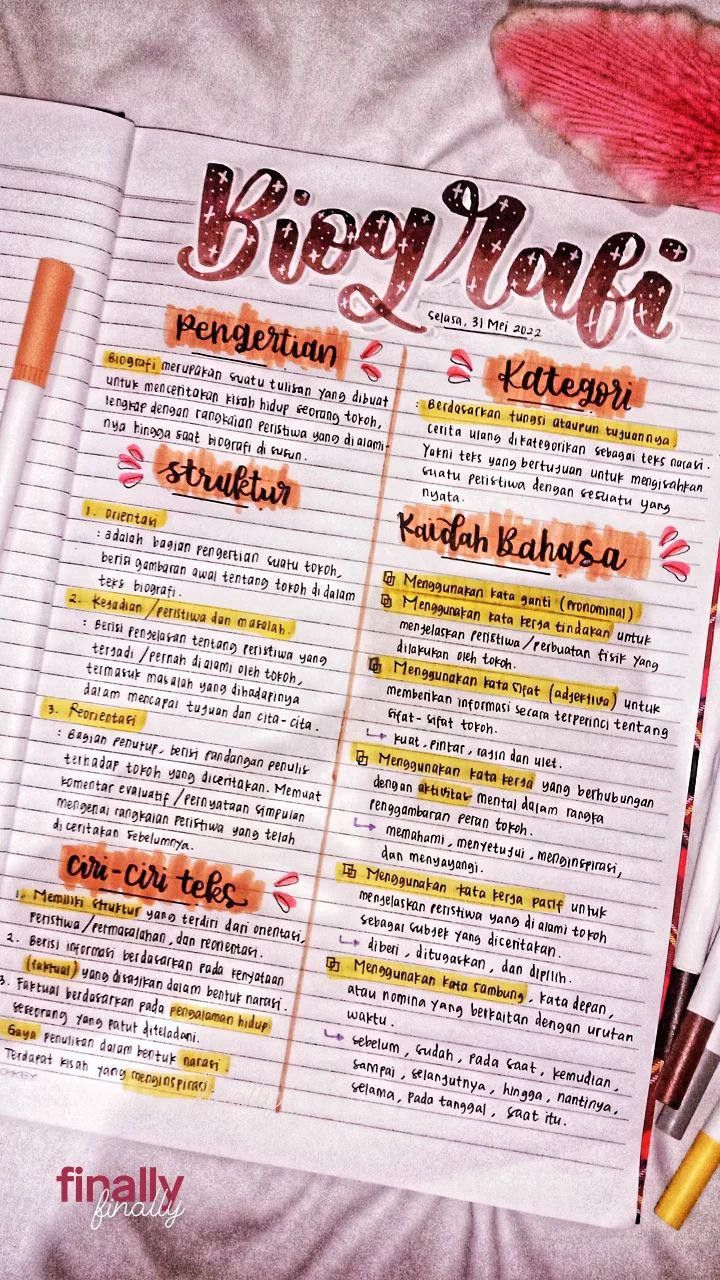 Biografi
Selasa, 31 Mei 2022
Pengertian
Biografi merupakan suatu tulisan yang dibuat
untuk menceritakan kisah hidup seorang tokoh,
lengkap dengan rangkaian peristiwa yang dialami-
nya hingga saat biografi di susun.
struktur
1. Orientasi
: adalah bagian pengertian suatu tokoh,
berisi gambaran awal tentang tokoh di dalam
teks biografi.
2. Kejadian / peristiwa dan masalah.
: Berisi penjelasan tentang peristiwa yang
terjadi / pernah di alami oleh tokoh,
termasuk masalah yang dihadapinya
dalam mencapai tujuan dan cita-cita.
3. Reorientasi
: Bagian penutup, berisi pandangan penulis
terhadap tokoh yang diceritakan. Memuat
komentar evaluatif / pernyataan simpulan
mengenai rangkaian peristiwa yang telah
di ceritakan sebelumnya.
ciri-ciri teks
1. Memiliki struktur yang terdiri dari orientasi,
Peristiwa/permasalahan, dan reorientasi.
2. Berisi informasi berdasarkan pada kenyataan
(faktual) yang disajikan dalam bentuk narasi.
3. Faktual berdasarkan pada pengalaman hidup
seseorang yang patut diteladani.
Gaya penulisan dalam bentuk narasi.
Terdapat kisah yang menginspirasi.
Kategori
: Berdasarkan fungsi ataupun tujuannya,
cerita ulang dikategorikan sebagai teks narasi.
Yakni teks yang bertujuan untuk mengisahkan
suatu peristiwa dengan sesuatu yang
nyata.
Kaidah Bahasa
Menggunakan kata ganti (Pronominal)
Menggunakan kata kerja tindakan untuk
menjelaskan peristiwa / perbuatan fisik yang
dilakukan oleh tokoh.
Menggunakan kata sifat (adjektiva) untuk
memberikan informasi secara terperinci tentang
sifat-sifat tokoh.
↳ kuat, pintar, rajin dan ulet.
Menggunakan kata kerja yang berhubungan
dengan aktivitas mental dalam rangka
penggambaran peran tokoh.
↳ memahami, menyetujui, menginspirasi,
dan menyayangi.
Menggunakan kata kerja pasif untuk
menjelaskan peristiwa yang di alami tokoh
sebagai subjek yang diceritakan.
↳ diberi, ditugaskan, dan dipilih.
Menggunakan kata sambung, kata depan,
atau nomina yang berkaitan dengan urutan
waktu.
↳ sebelum, sudah, pada saat, kemudian,
sampai, selanjutnya, hingga, nantinya,
selama, pada tanggal, saat itu.
finally
finally